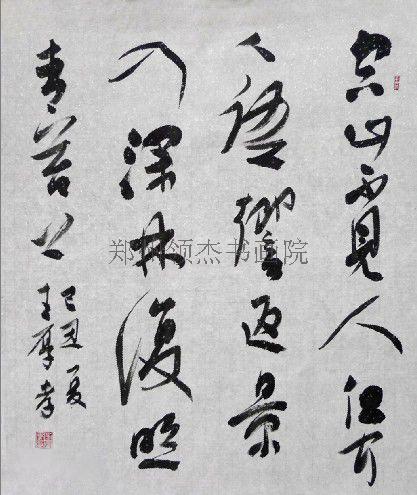 空山不見人但聞
人語響返景
入深林復照
青苔上
己丑夏
郑州领杰书画院